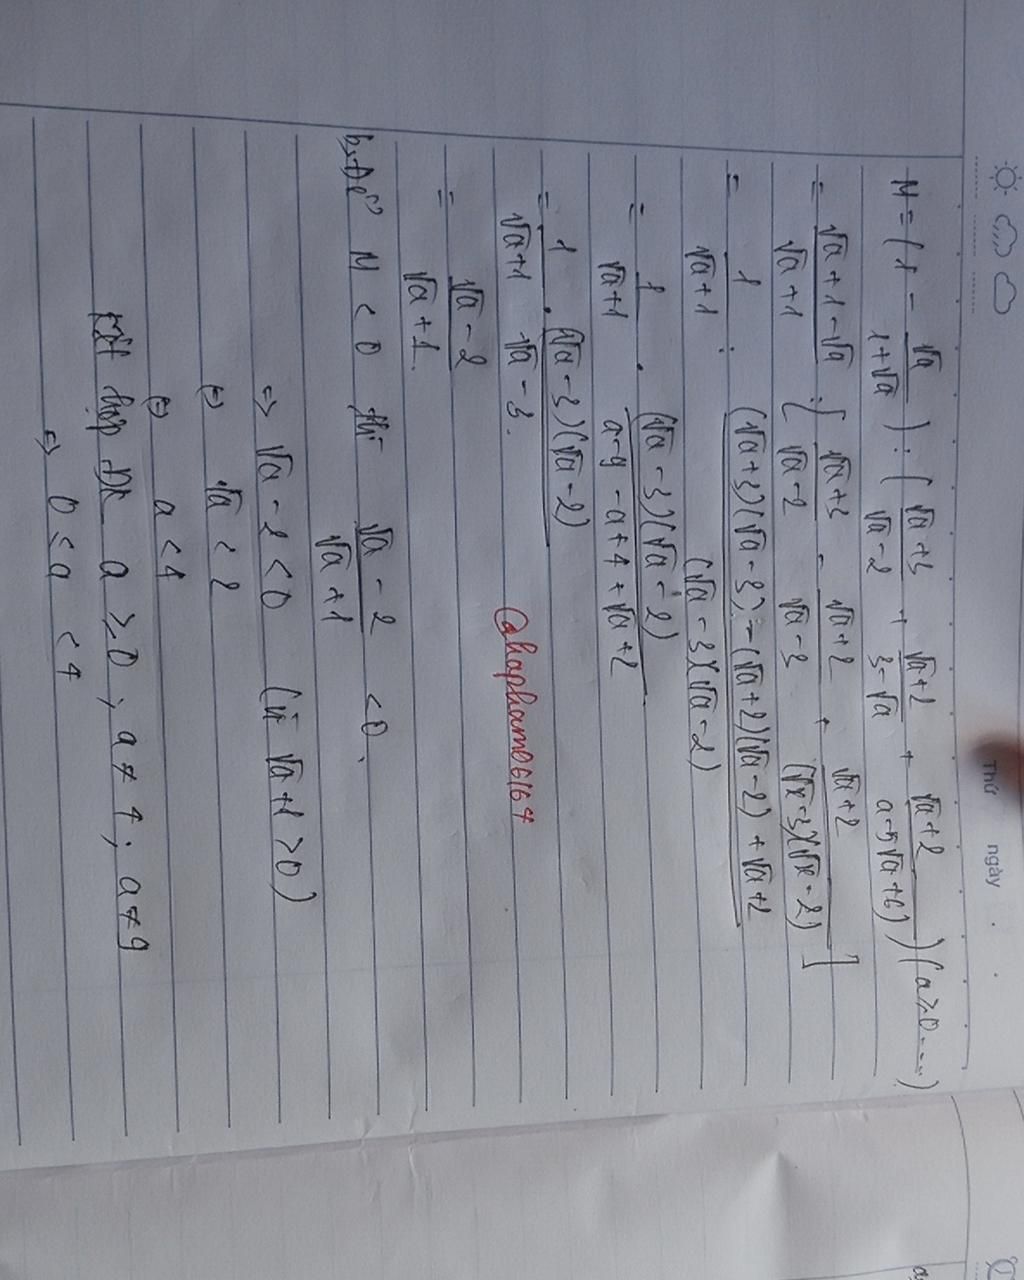 Thứ ngày
M = (1 - √a/(1+√a)) : (√a+3/(√a-2) + √a+2/(3-√a) + √a+2/(a-5√a+6)) (a≥0....)
= (√a+1-√a)/(√a+1) : [√a+3/(√a-2) - √a+2/(√a-3) + √a+2/((√x-3)(√x-2))]
= 1/(√a+1) : ((√a+3)(√a-3) - (√a+2)(√a-2) + √a+2)/((√a-3)(√a-2))
= 1/(√a+1) . ((√a-3)(√a-2))/(a-9-a+4+√a+2)
= 1/(√a+1) . ((√a-3)(√a-2))/(√a-3).
@hapham06164
= (√a-2)/(√a+1).
b, Để M < 0 thì (√a-2)/(√a+1) < 0.
=> √a-2 < 0 (vì √a+1 > 0)
(=) √a < 2
(=) a < 4
kết hợp Đk a ≥ 0 ; a ≠ 4 ; a ≠ 9
=> 0 ≤ a < 4